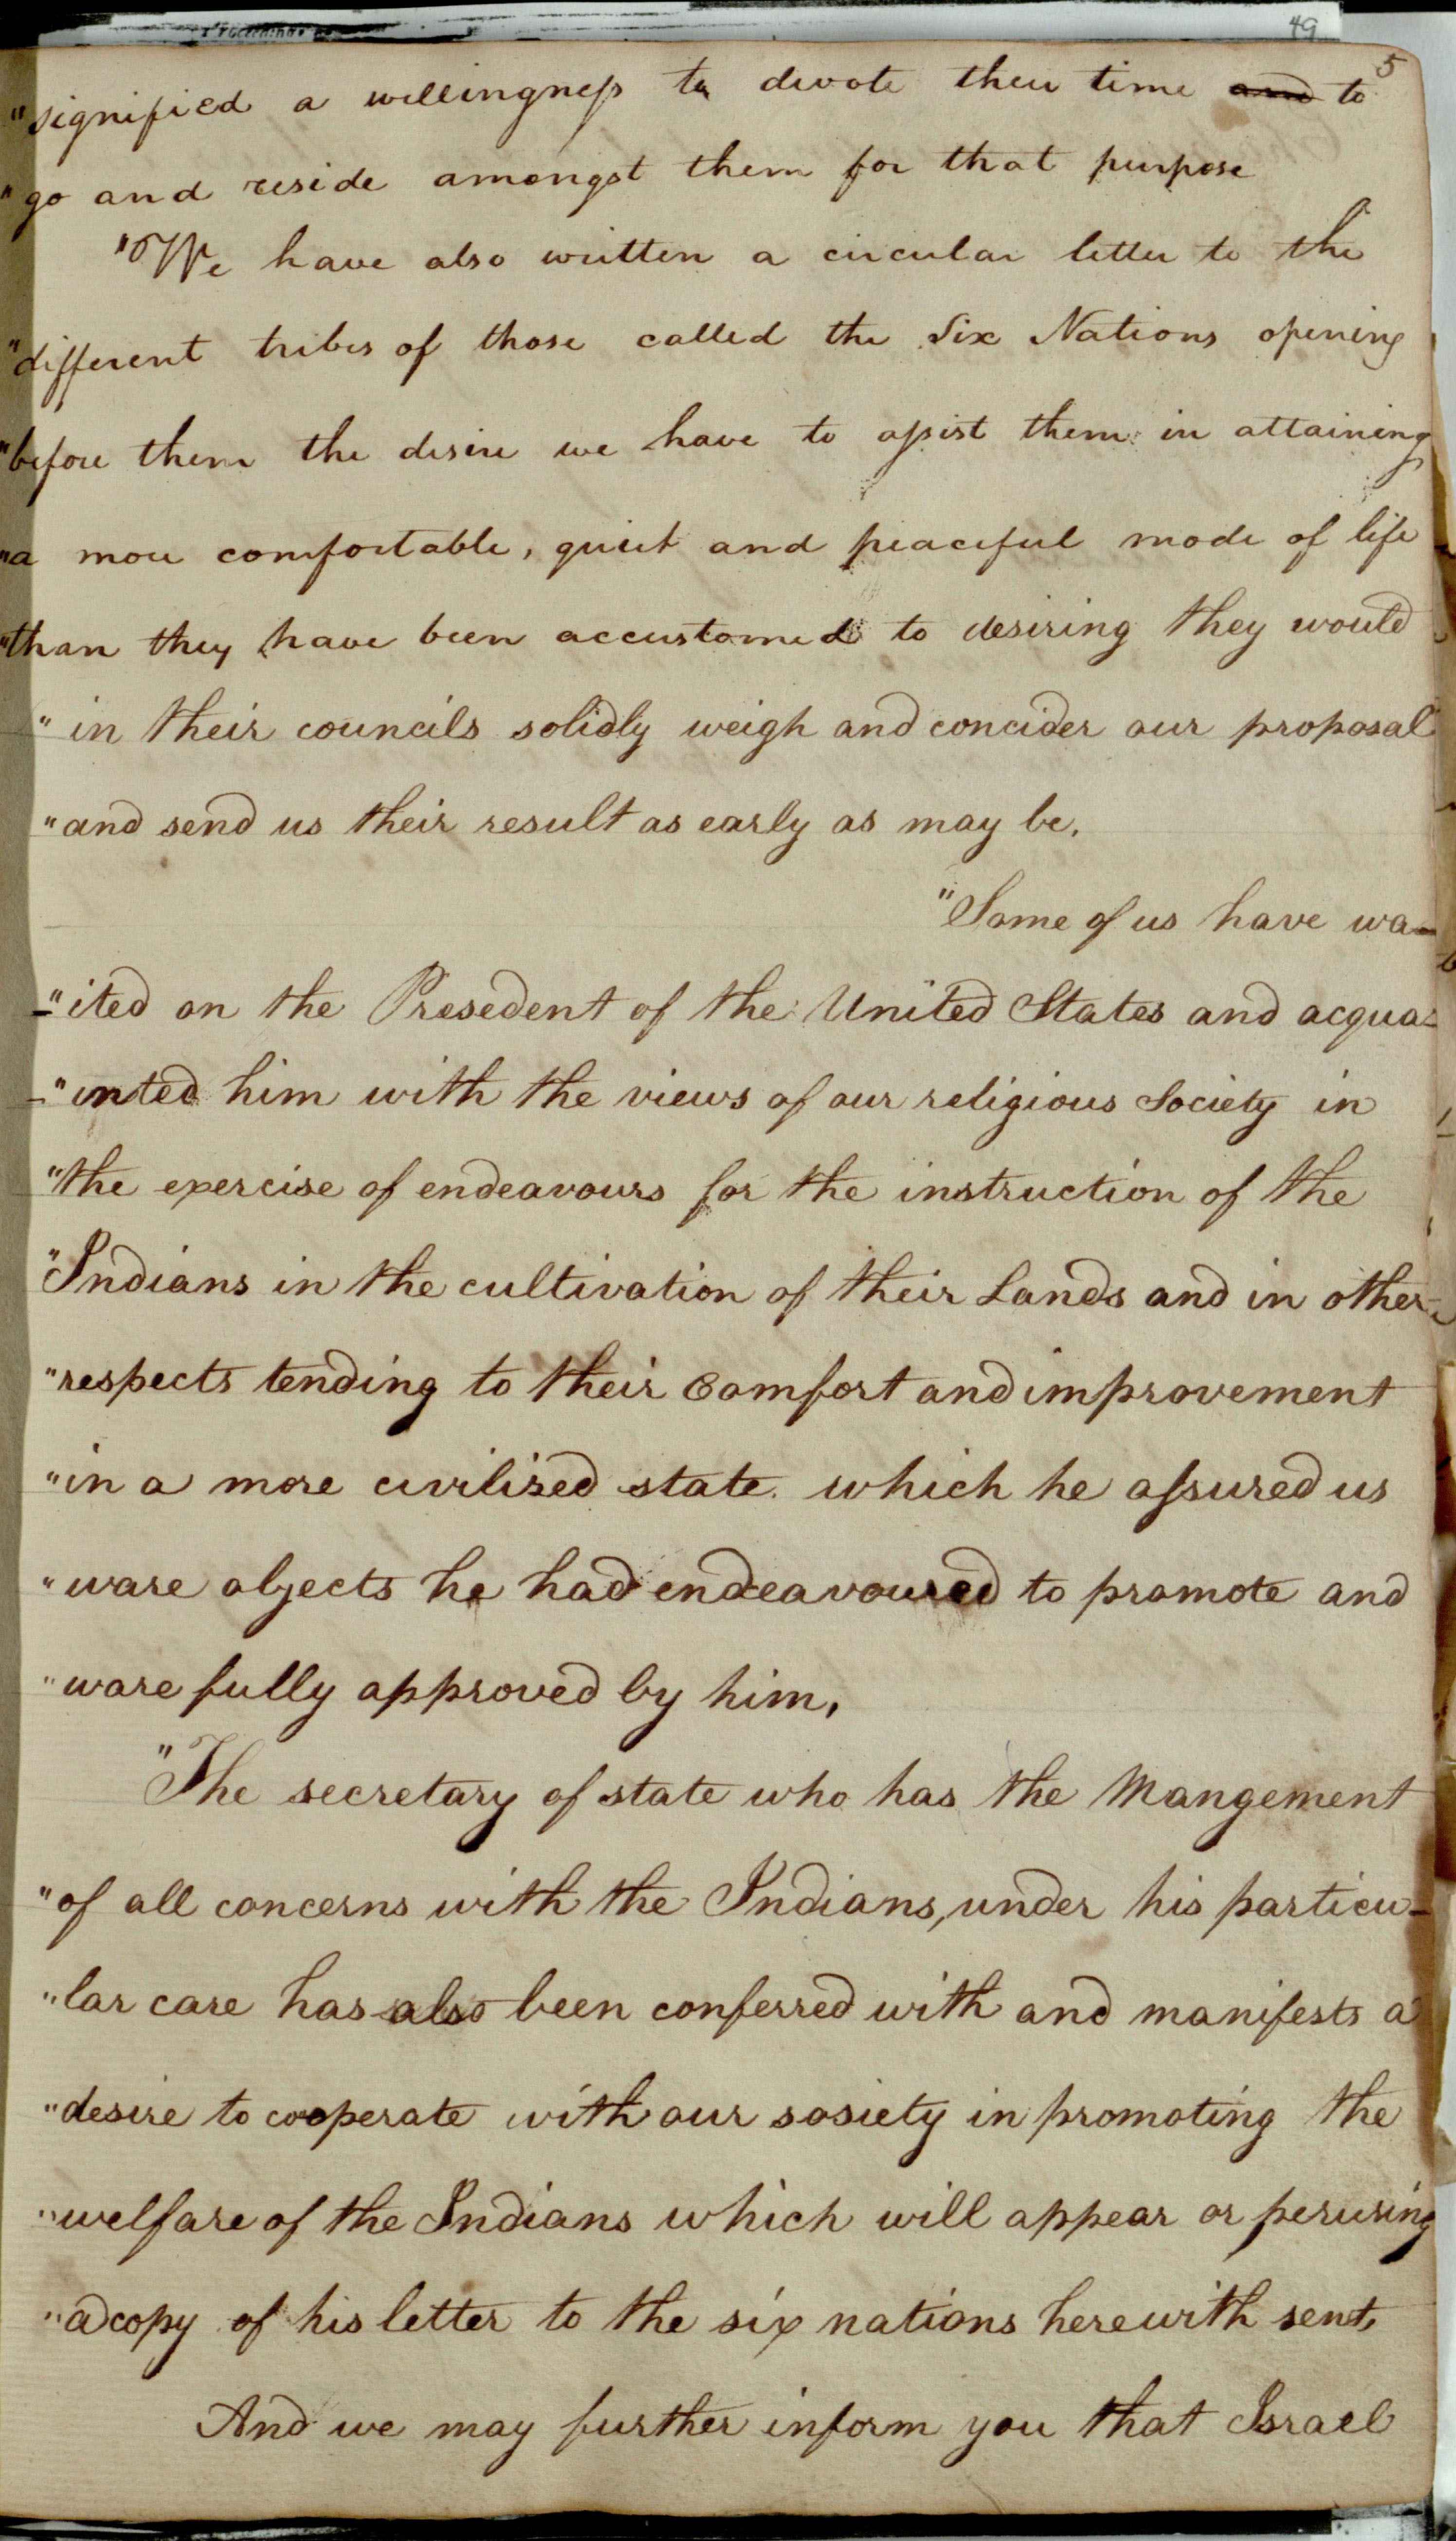 49
5
"signified a willingness to devote their time and to
"go and reside amongst them for that purpose
"We have also written a circular letter to the
"different tribes of those called the Six Nations opening
"before them the desire we have to assist them in attaining
"a more comfortable, quiet and peaceful mode of life
"than they have been accustomed to desiring they would
"in their councils solidly weigh and concider our proposal
"and send us their result as early as may be.
"Some of us have wa-
-"ited on the Presedent of the United States and acqua-
-"inted him with the views of our religious Society in
"the exercise of endeavours for the instruction of the
"Indians in the cultivation of their Lands and in other
"respects tending to their Comfort and improvement
"in a more civilized state. which he assured us
"ware objects he had endeavoured to promote and
"ware fully approved by him,
"The secretary of state who has the Mangement
"of all concerns with the Indians, under his particu-
"lar care has also been conferred with and manifests a
"desire to cooperate with our sosiety in promoting the
"welfare of the Indians which will appear or perusing
"a copy of his letter to the six nations herewith sent,
And we may further inform you that Israel